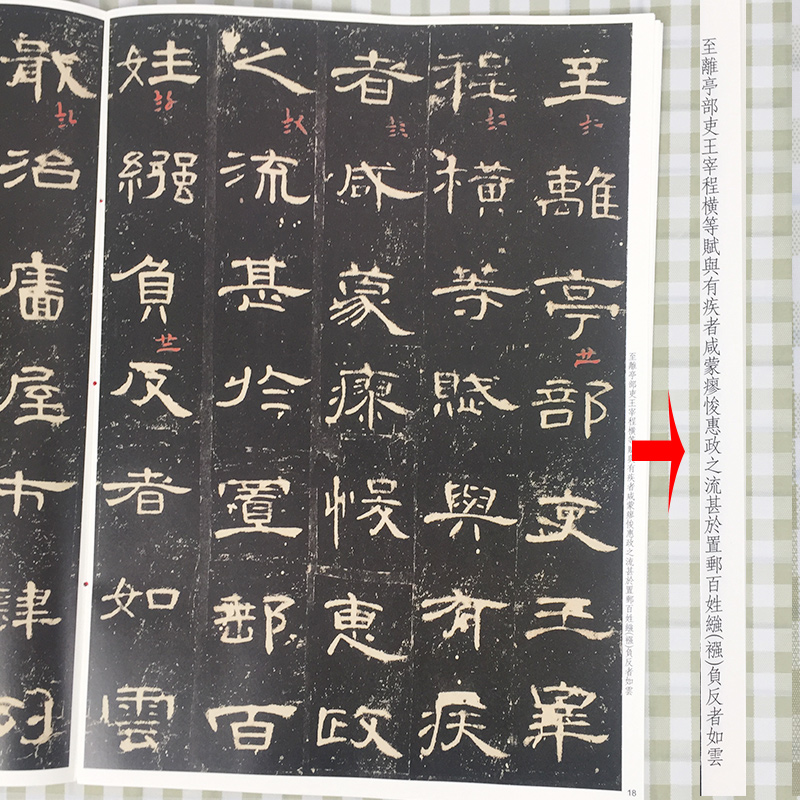 至離亭部吏王宰程橫等賦與有疾者咸蒙瘳悛惠政之流甚於置郵百姓繈(襁)負反者如雲
至離亭部吏王宰程橫等賦與有疾者咸蒙瘳悛惠政之流甚於置郵百姓繈(襁)負反者如雲
18
至離亭部吏王宰
程橫等賦與有疾
者咸蒙瘳悛惠政
之流甚於置郵百
姓繈負反者如雲
戢治廧屋市肆列